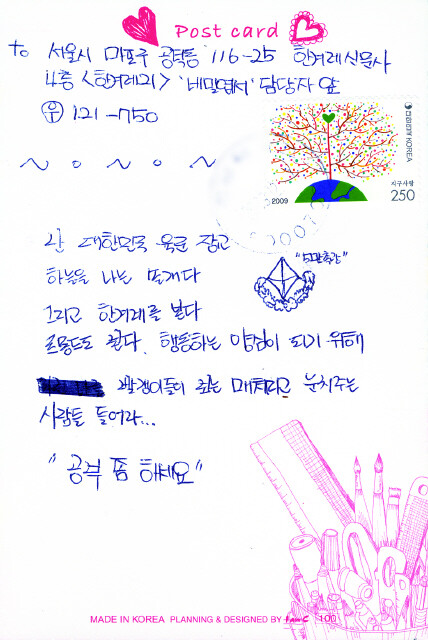 Post card
to 서울시 마포구 공덕동 116-25 한겨레신문사
4층 <한겨레21> '비밀엽서' 담당자 앞
우 121-750
대한민국 KOREA
지구사랑
2009
250
난 대한민국 육군 장교
하늘을 나는 솔개다
"보만축관"
그리고 한겨레를 본다
르몽드도 본다. 행동하는 양심이 되기 위해
빨갱이들이 보는 매체라고 눈치주는
사람들 들어라...
"공부 좀 해세요"
MADE IN KOREA PLANNING & DESIGNED BY 100